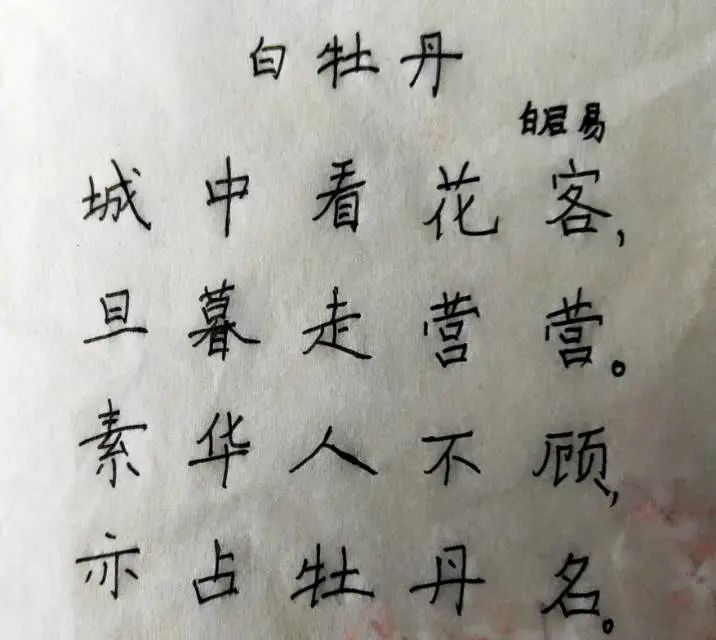 白牡丹
白居易
城中看花客,
旦暮走营营。
素华人不顾,
亦占牡丹名。